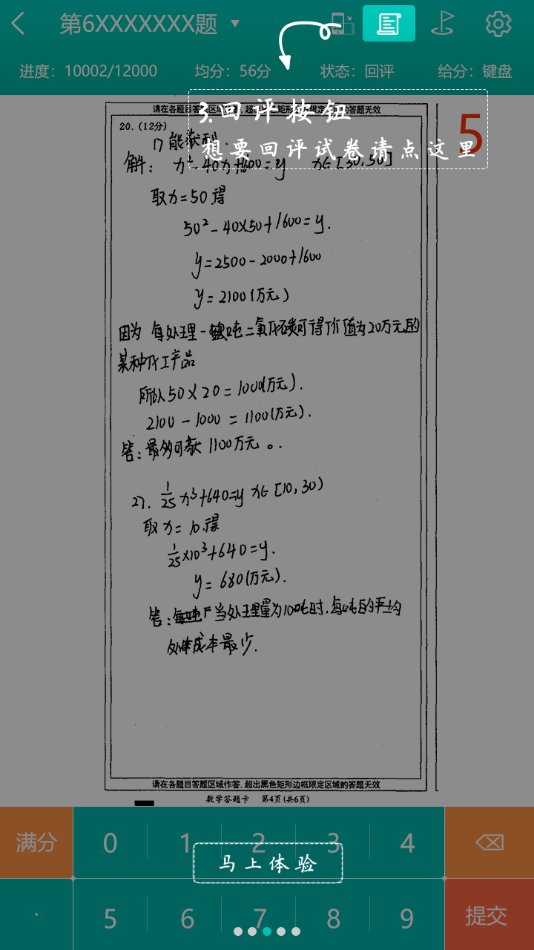 第6XXXXXXX题
进度：10002/12000 均分：56分 状态：回评 给分：键盘
请在各题目答题区域作答，超出黑色矩形边框限定区域的答题无效
3.回评按钮
5
20. (12分)
想要回评试卷请点这里
1) 能获利.
解： x²-40x+1600=y x∈[30,50]
取x=50得
50²-40×50+1600=y.
y=2500-2000+1600
y=2100(万元)
因为 每处理一吨二氧化碳可得价值为20万元的
某种化工产品
所以50×20=1000(万元).
2100-1000=1100(万元).
答：最多可获1100万元。
2). 1/25 x³+640=y x∈[10,30)
取x=10.得
1/25×10³+640=y.
y=680(万元).
答： 当处理量为10吨时，每吨的平均
处理成本最少.
请在各题目答题区域作答，超出黑色矩形边框限定区域的答题无效
数学答题卡 第4页(共6页)
满分 0 1 2 3 4
马上体验
. 5 6 7 8 9 提交